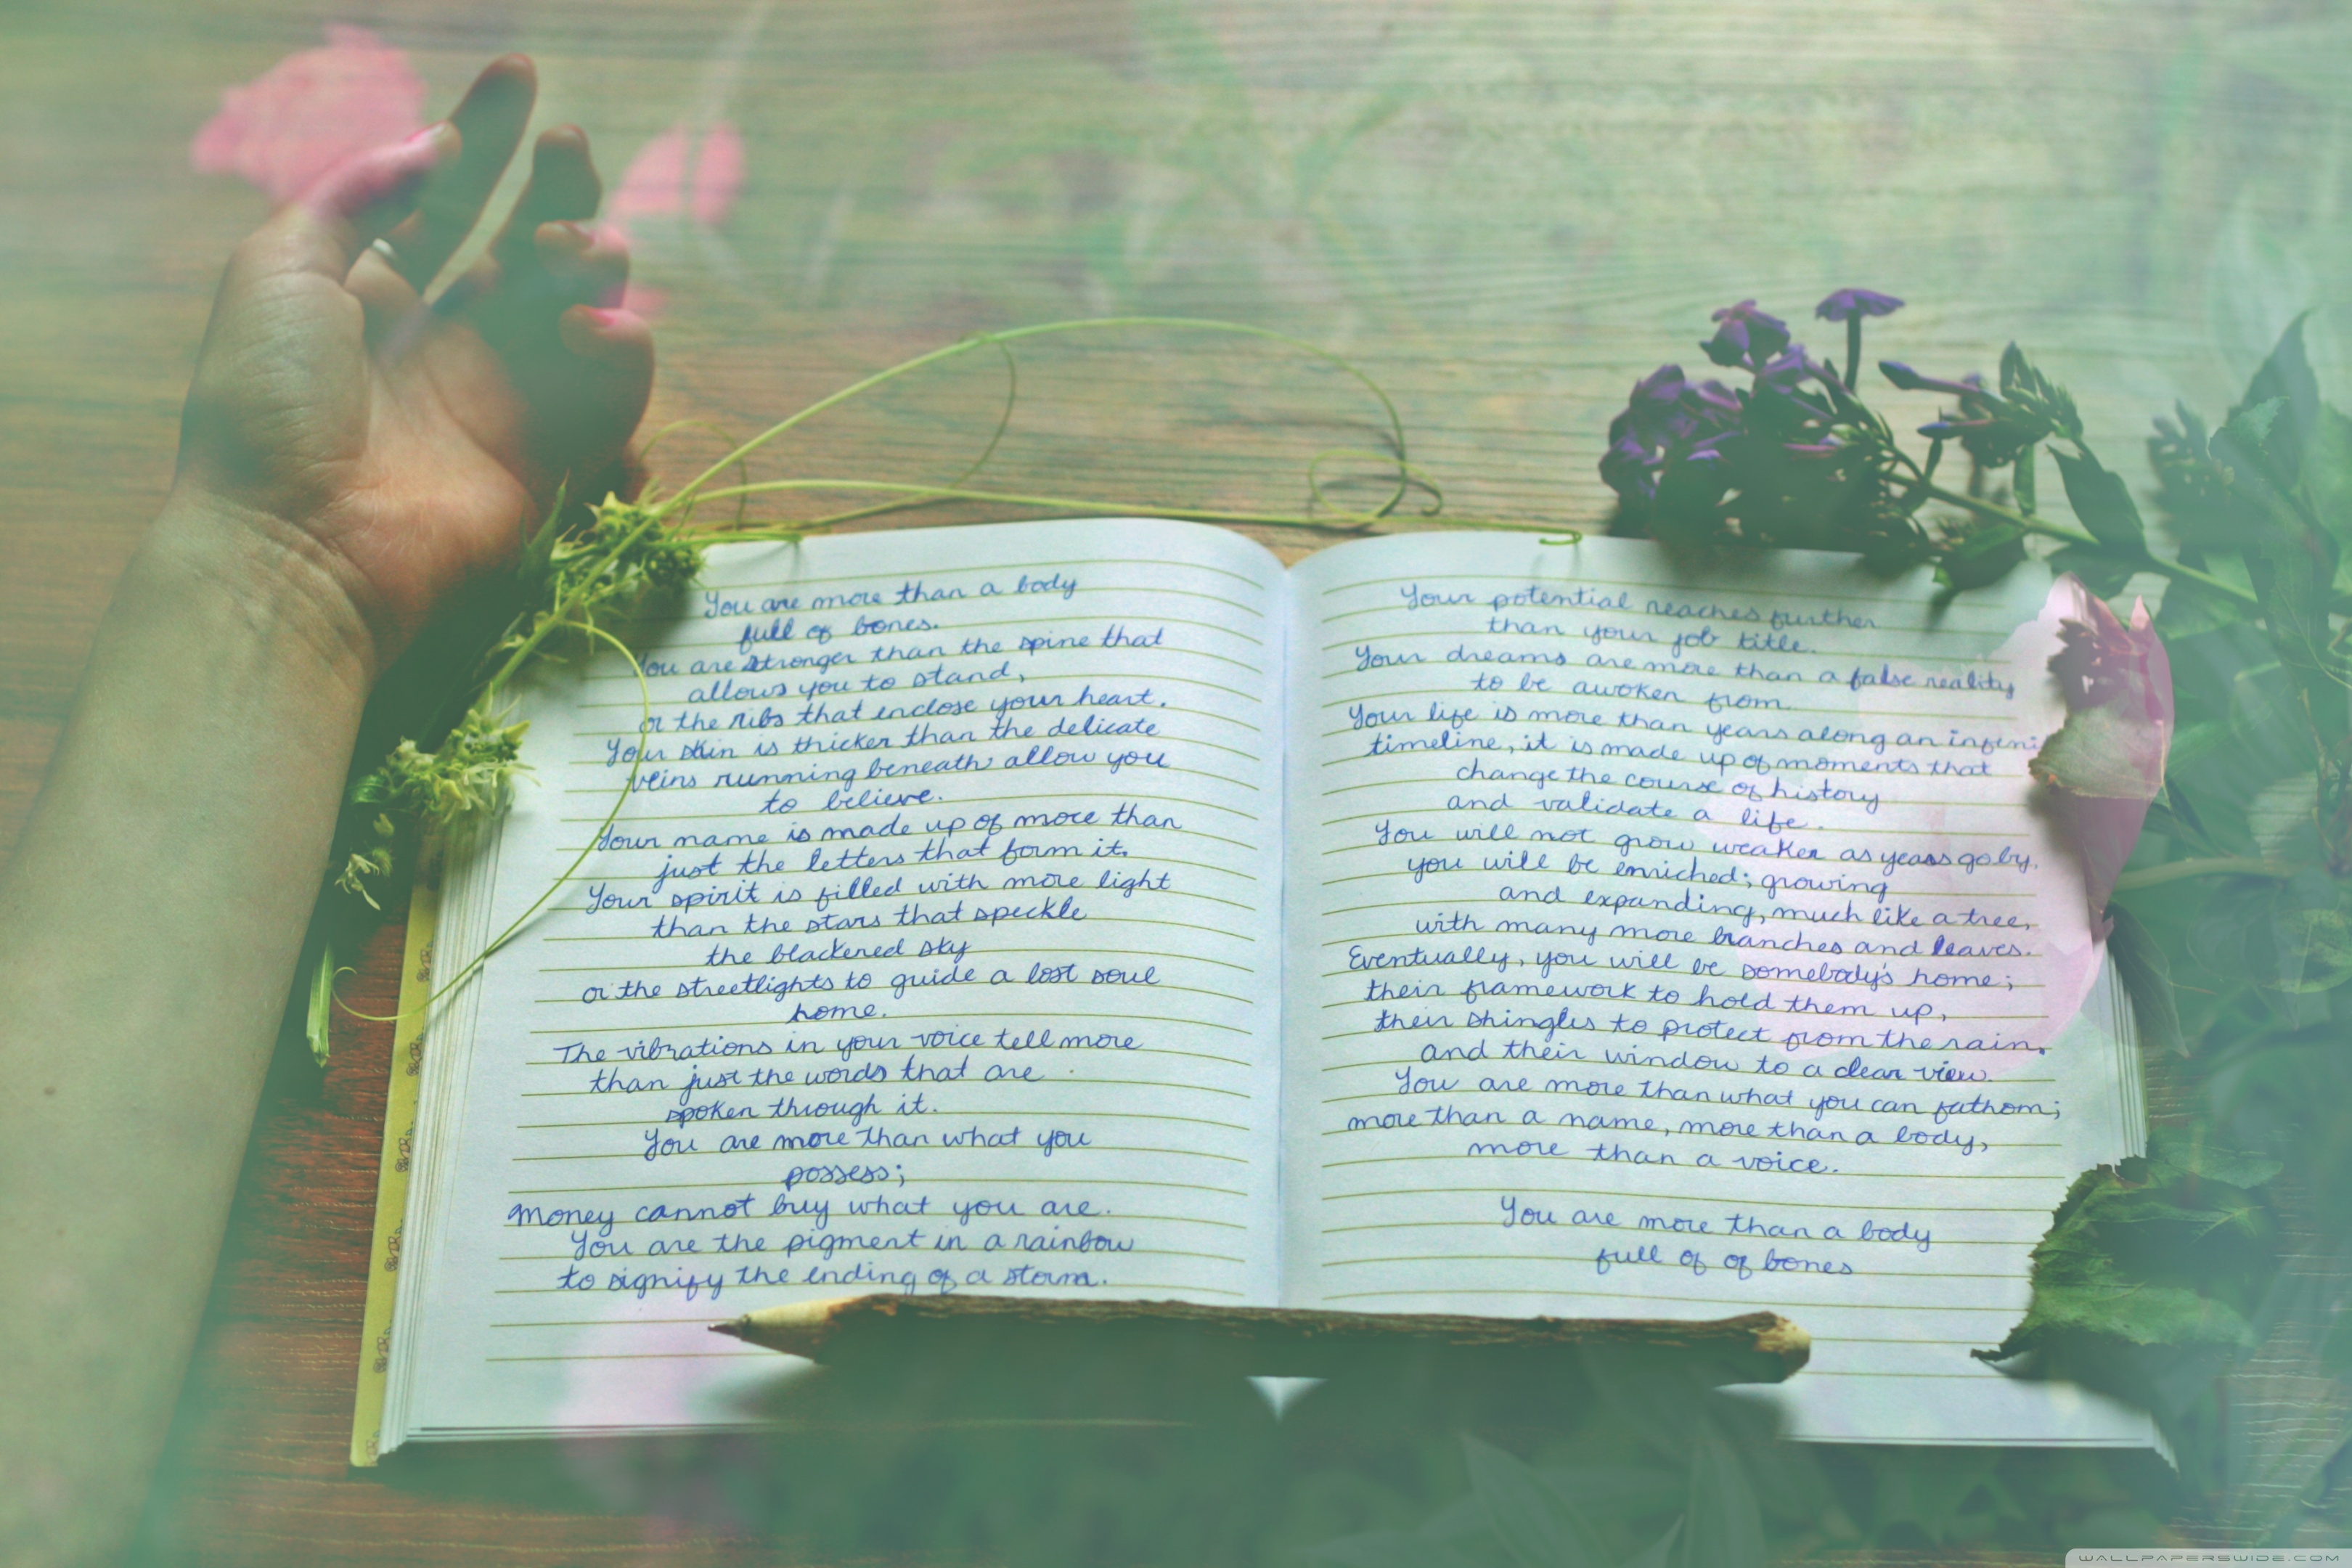 You are more than a body
full of bones.
You are stronger than the spine that
allows you to stand,
or the ribs that enclose your heart.
Your skin is thicker than the delicate
veins running beneath allow you
to believe.
Your name is made up of more than
just the letters that form it.
Your spirit is filled with more light
than the stars that speckle
the blackened sky
or the streetlights to guide a lost soul
home.
The vibrations in your voice tell more
than just the words that are
spoken through it.
You are more than what you
possess;
Money cannot buy what you are.
You are the pigment in a rainbow
to signify the ending of a storm.
Your potential reaches further
than your job title.
Your dreams are more than a false reality
to be awoken from.
Your life is more than years along an infini
timeline, it is made up of moments that
change the course of history
and validate a life.
You will not grow weaker as years go by.
you will be enriched; growing
and expanding, much like a tree,
with many more branches and leaves.
Eventually, you will be somebody's home;
their framework to hold them up,
their shingles to protect from the rain.
and their window to a clear view.
You are more than what you can fathom;
more than a name, more than a body,
more than a voice.
You are more than a body
full of of bones
WALLPAPERSWIDE.COM